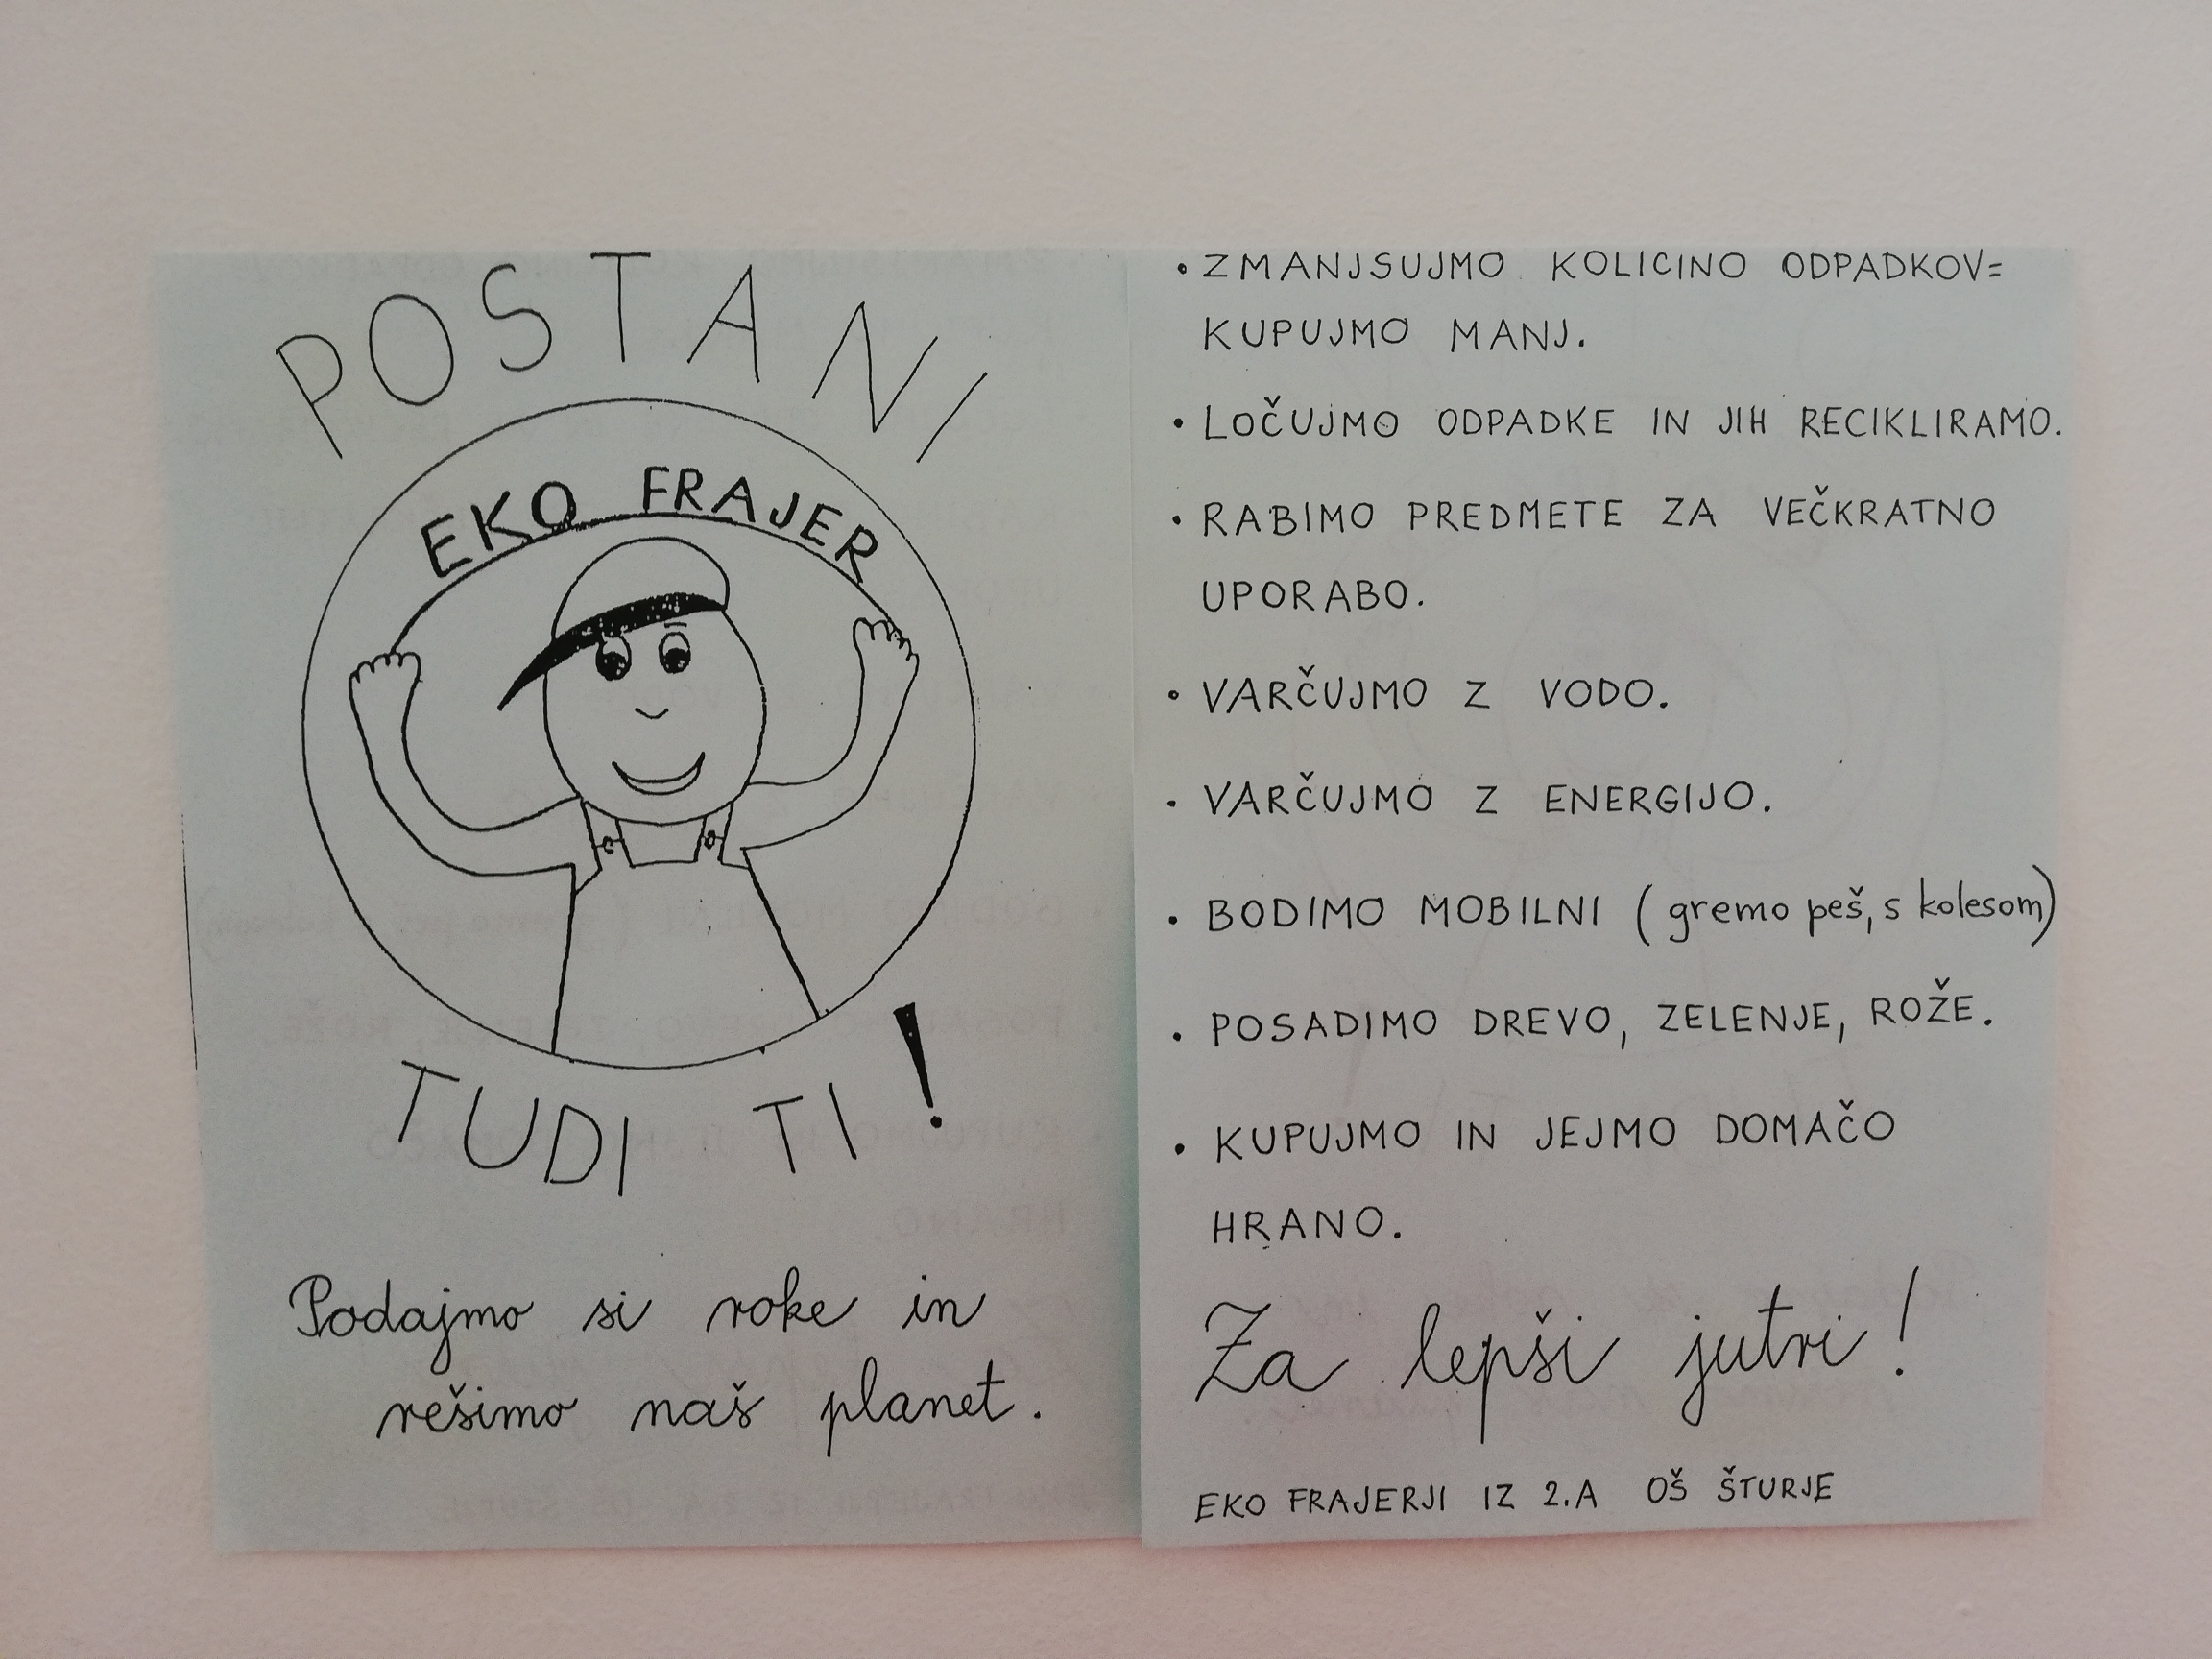 POSTANI
EKO FRAJER
TUDI TI!
Podajmo si roke in
rešimo naš planet.
• ZMANJSUJMO KOLICINO ODPADKOV=
KUPUJMO MANJ.
• LOČUJMO ODPADKE IN JIH RECIKLIRAMO.
• RABIMO PREDMETE ZA VEČKRATNO
UPORABO.
• VARČUJMO Z VODO.
• VARČUJMO Z ENERGIJO.
• BODIMO MOBILNI (gremo peš, s kolesom)
• POSADIMO DREVO, ZELENJE, ROŽE.
• KUPUJMO IN JEJMO DOMAČO
HRANO.
Za lepši jutri!
EKO FRAJERJI IZ 2.A OŠ ŠTURJE